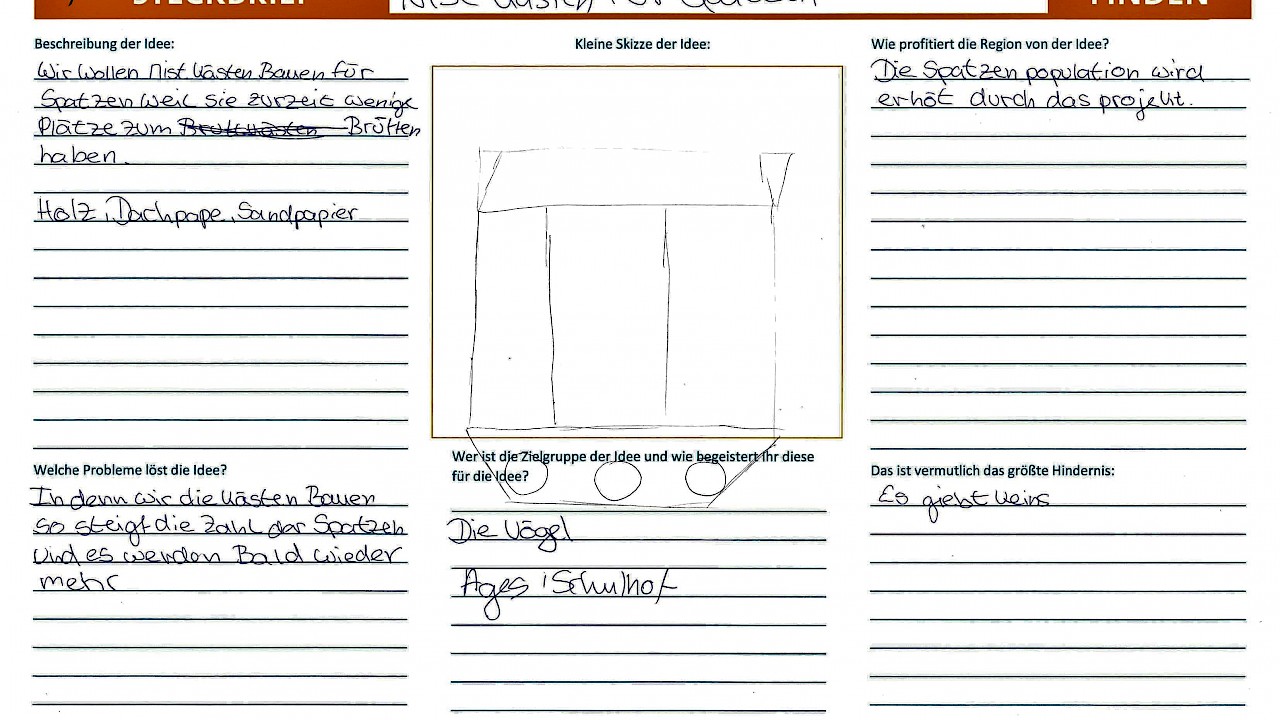 STECKBRIEF
FINDEN
Beschreibung der Idee:
Wir wollen Nist kästen Bauen für
Spatzen weil sie zurzeit wenige
Plätze zum Brütten
haben.
Holz, Dachpape, Sandpapier
Kleine Skizze der Idee:
Wie profitiert die Region von der Idee?
Die Spatzen population wird
erhöt durch das projekt.
Welche Probleme löst die Idee?
In denn wir die kästen Bauen
so steigt die Zahl der Spatzen
und es werden Bald wieder
mehr
Wer ist die Zielgruppe der Idee und wie begeistert ihr diese
für die Idee?
Die Vögel
Ages, Schulhof
Das ist vermutlich das größte Hindernis:
Es giebt keins